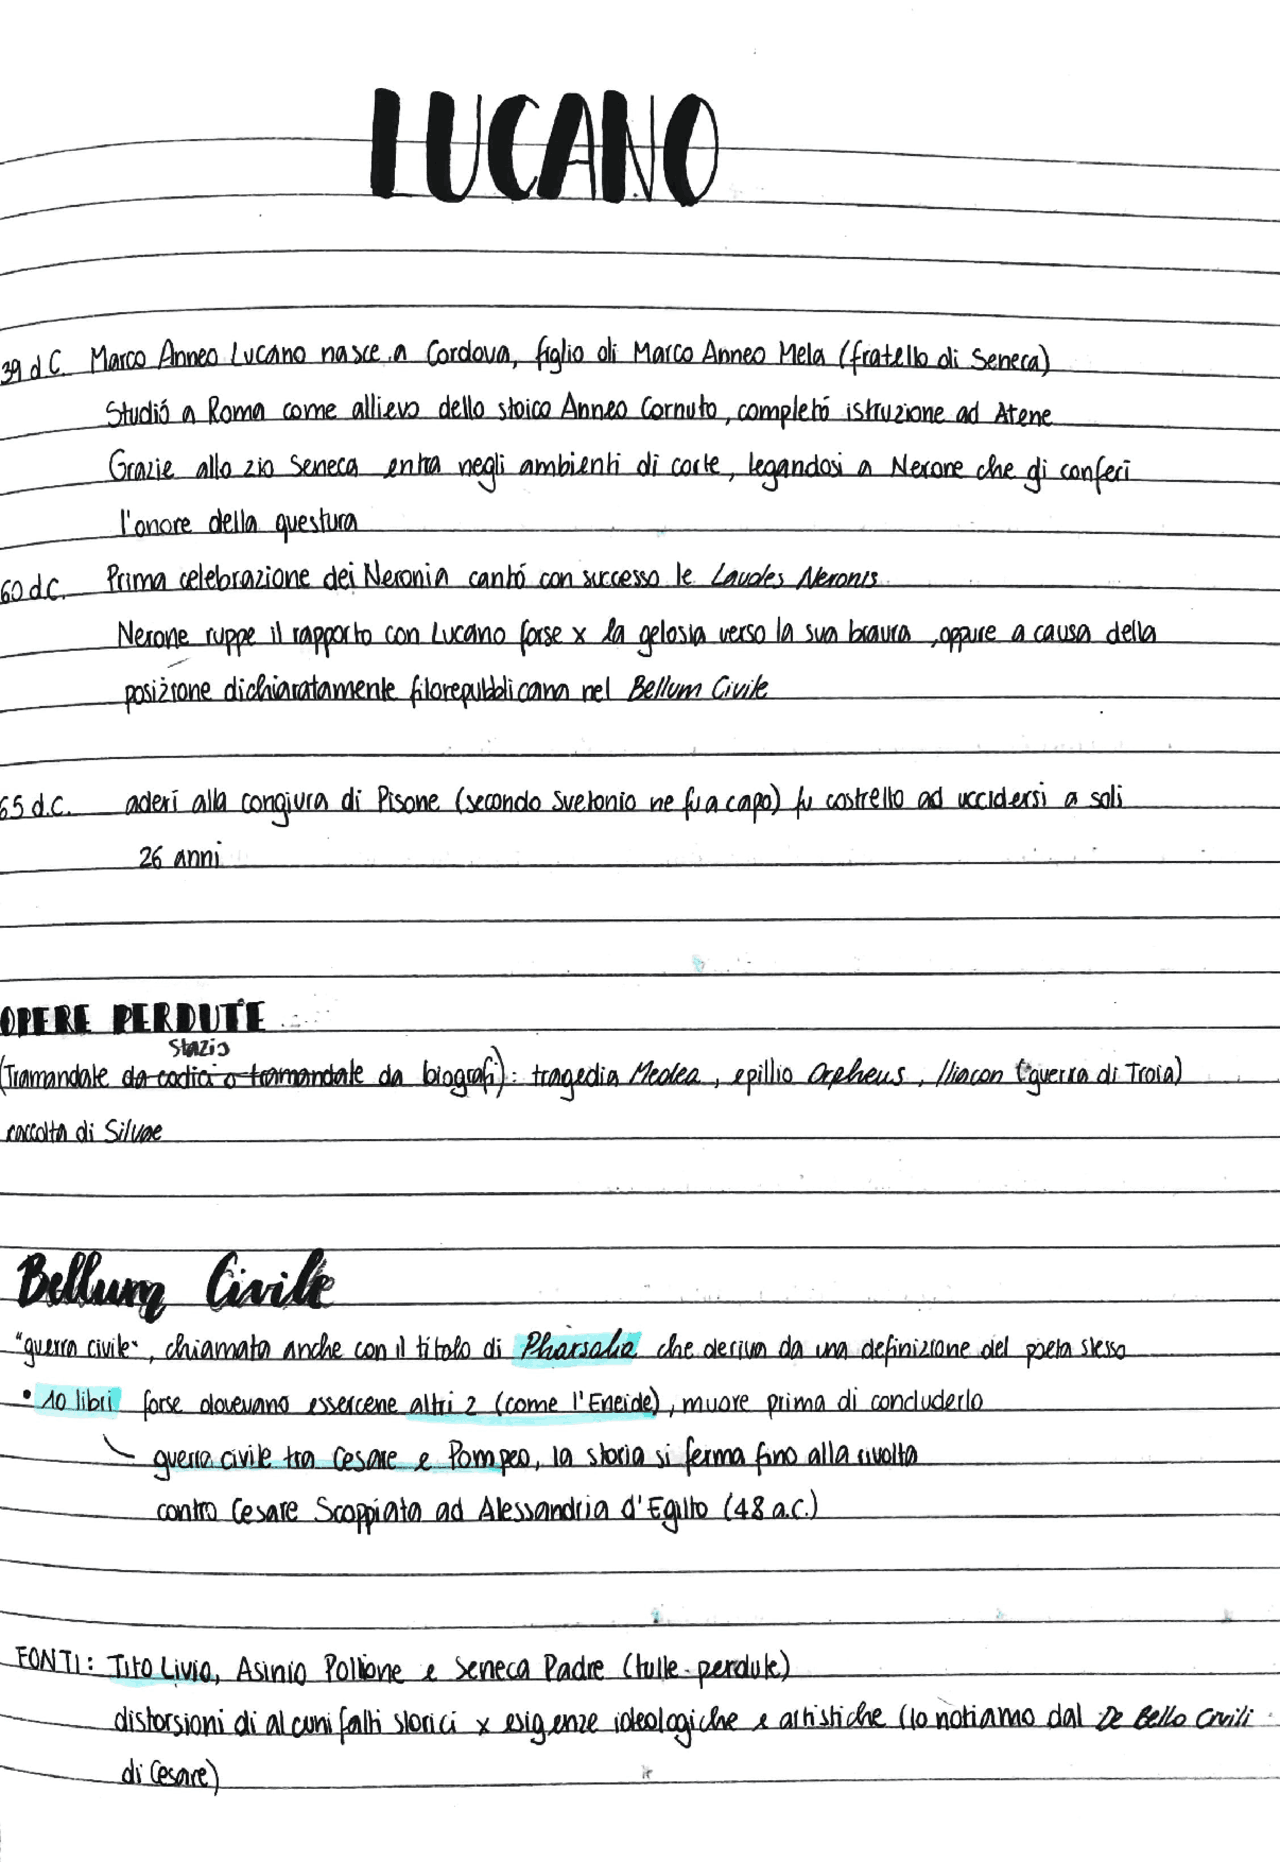 LUCANO
39 d C. Marco Anneo Lucano nasce a Cordova, figlio di Marco Anneo Mela (fratello di Seneca)
Studió a Roma come allievo dello stoico Anneo Cornuto, completó istruzione ad Atene
Grazie allo zio Seneca entra negli ambienti di corte, legandosi a Nerone che gi conferì
l'onore della questura
60 d.C. Prima celebrazione dei Neronia cantó con successo le Laudes Neronis
Nerone ruppe il rapporto con Lucano forse x la gelosia verso la sua bravura, oppure a causa della
posizione dichiaratamente filorepubblicana nel Bellum Civile
65 d.C. aderì alla congiura di Pisone (secondo Svetonio ne fu a capo) fu costretto ad uccidersi a soli
26 anni
OPERE PERDUTE
Stazio
(Tramandate da codici o tramandate da biografi): tragedia Medea, epillio Orpheus, Iliacon (guerra di Troia)
raccolta di Silvae
Bellum Civile
"guerra civile", chiamata anche con il titolo di Pharsalia che deriva da una definizione del poeta stesso
• 10 libri forse dovevano essercene altri 2 (come l'Eneide), muore prima di concluderlo
guerra civile tra Cesare e Pompeo, la storia si ferma fino alla rivolta
contro Cesare Scoppiata ad Alessandria d'Egitto (48 a.C.)
FONTI: Tito Livio, Asinio Pollione e Seneca Padre (tutte perdute)
distorsioni di alcuni fatti storici x esigenze ideologiche e artistiche (lo notiamo dal De Bello Civili
di Cesare)